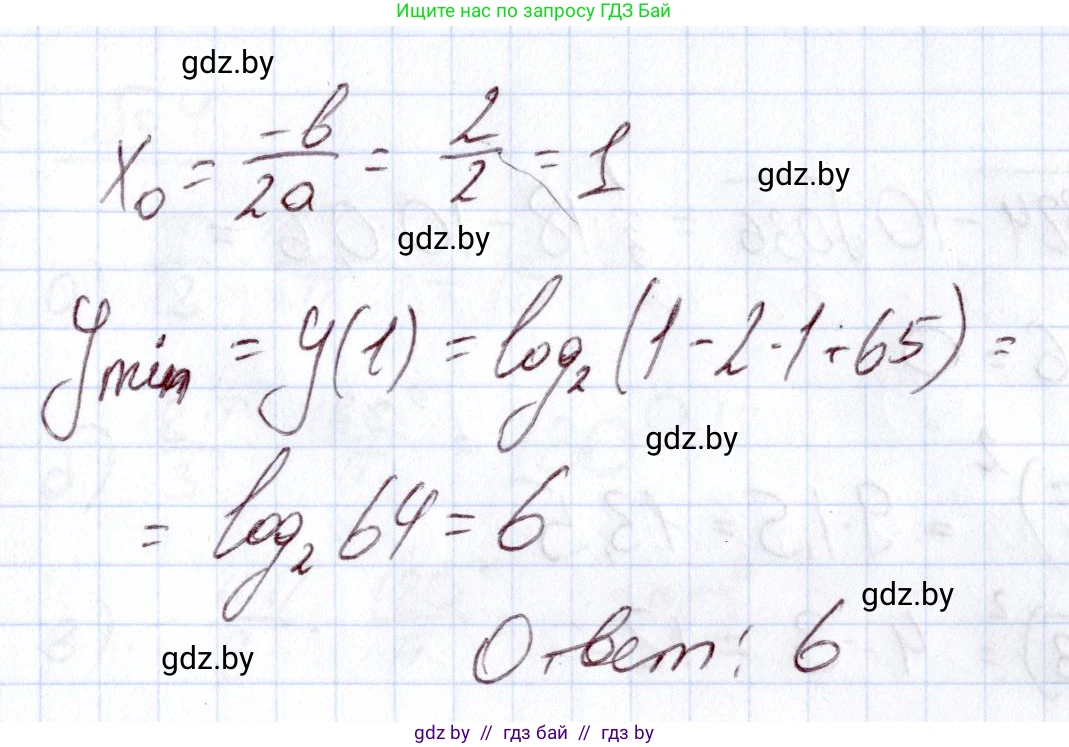 Ищите нас по запросу ГДЗ Бай
gdz.by
x₀ = -b/2a = 2/2 = 1
gdz.by
gdz.by
y_min = y(1) = log₂(1 - 2·1 + 65) =
gdz.by
= log₂ 64 = 6
gdz.by
Ответ: 6
gdz.by
gdz by // гдз бай // гдз by